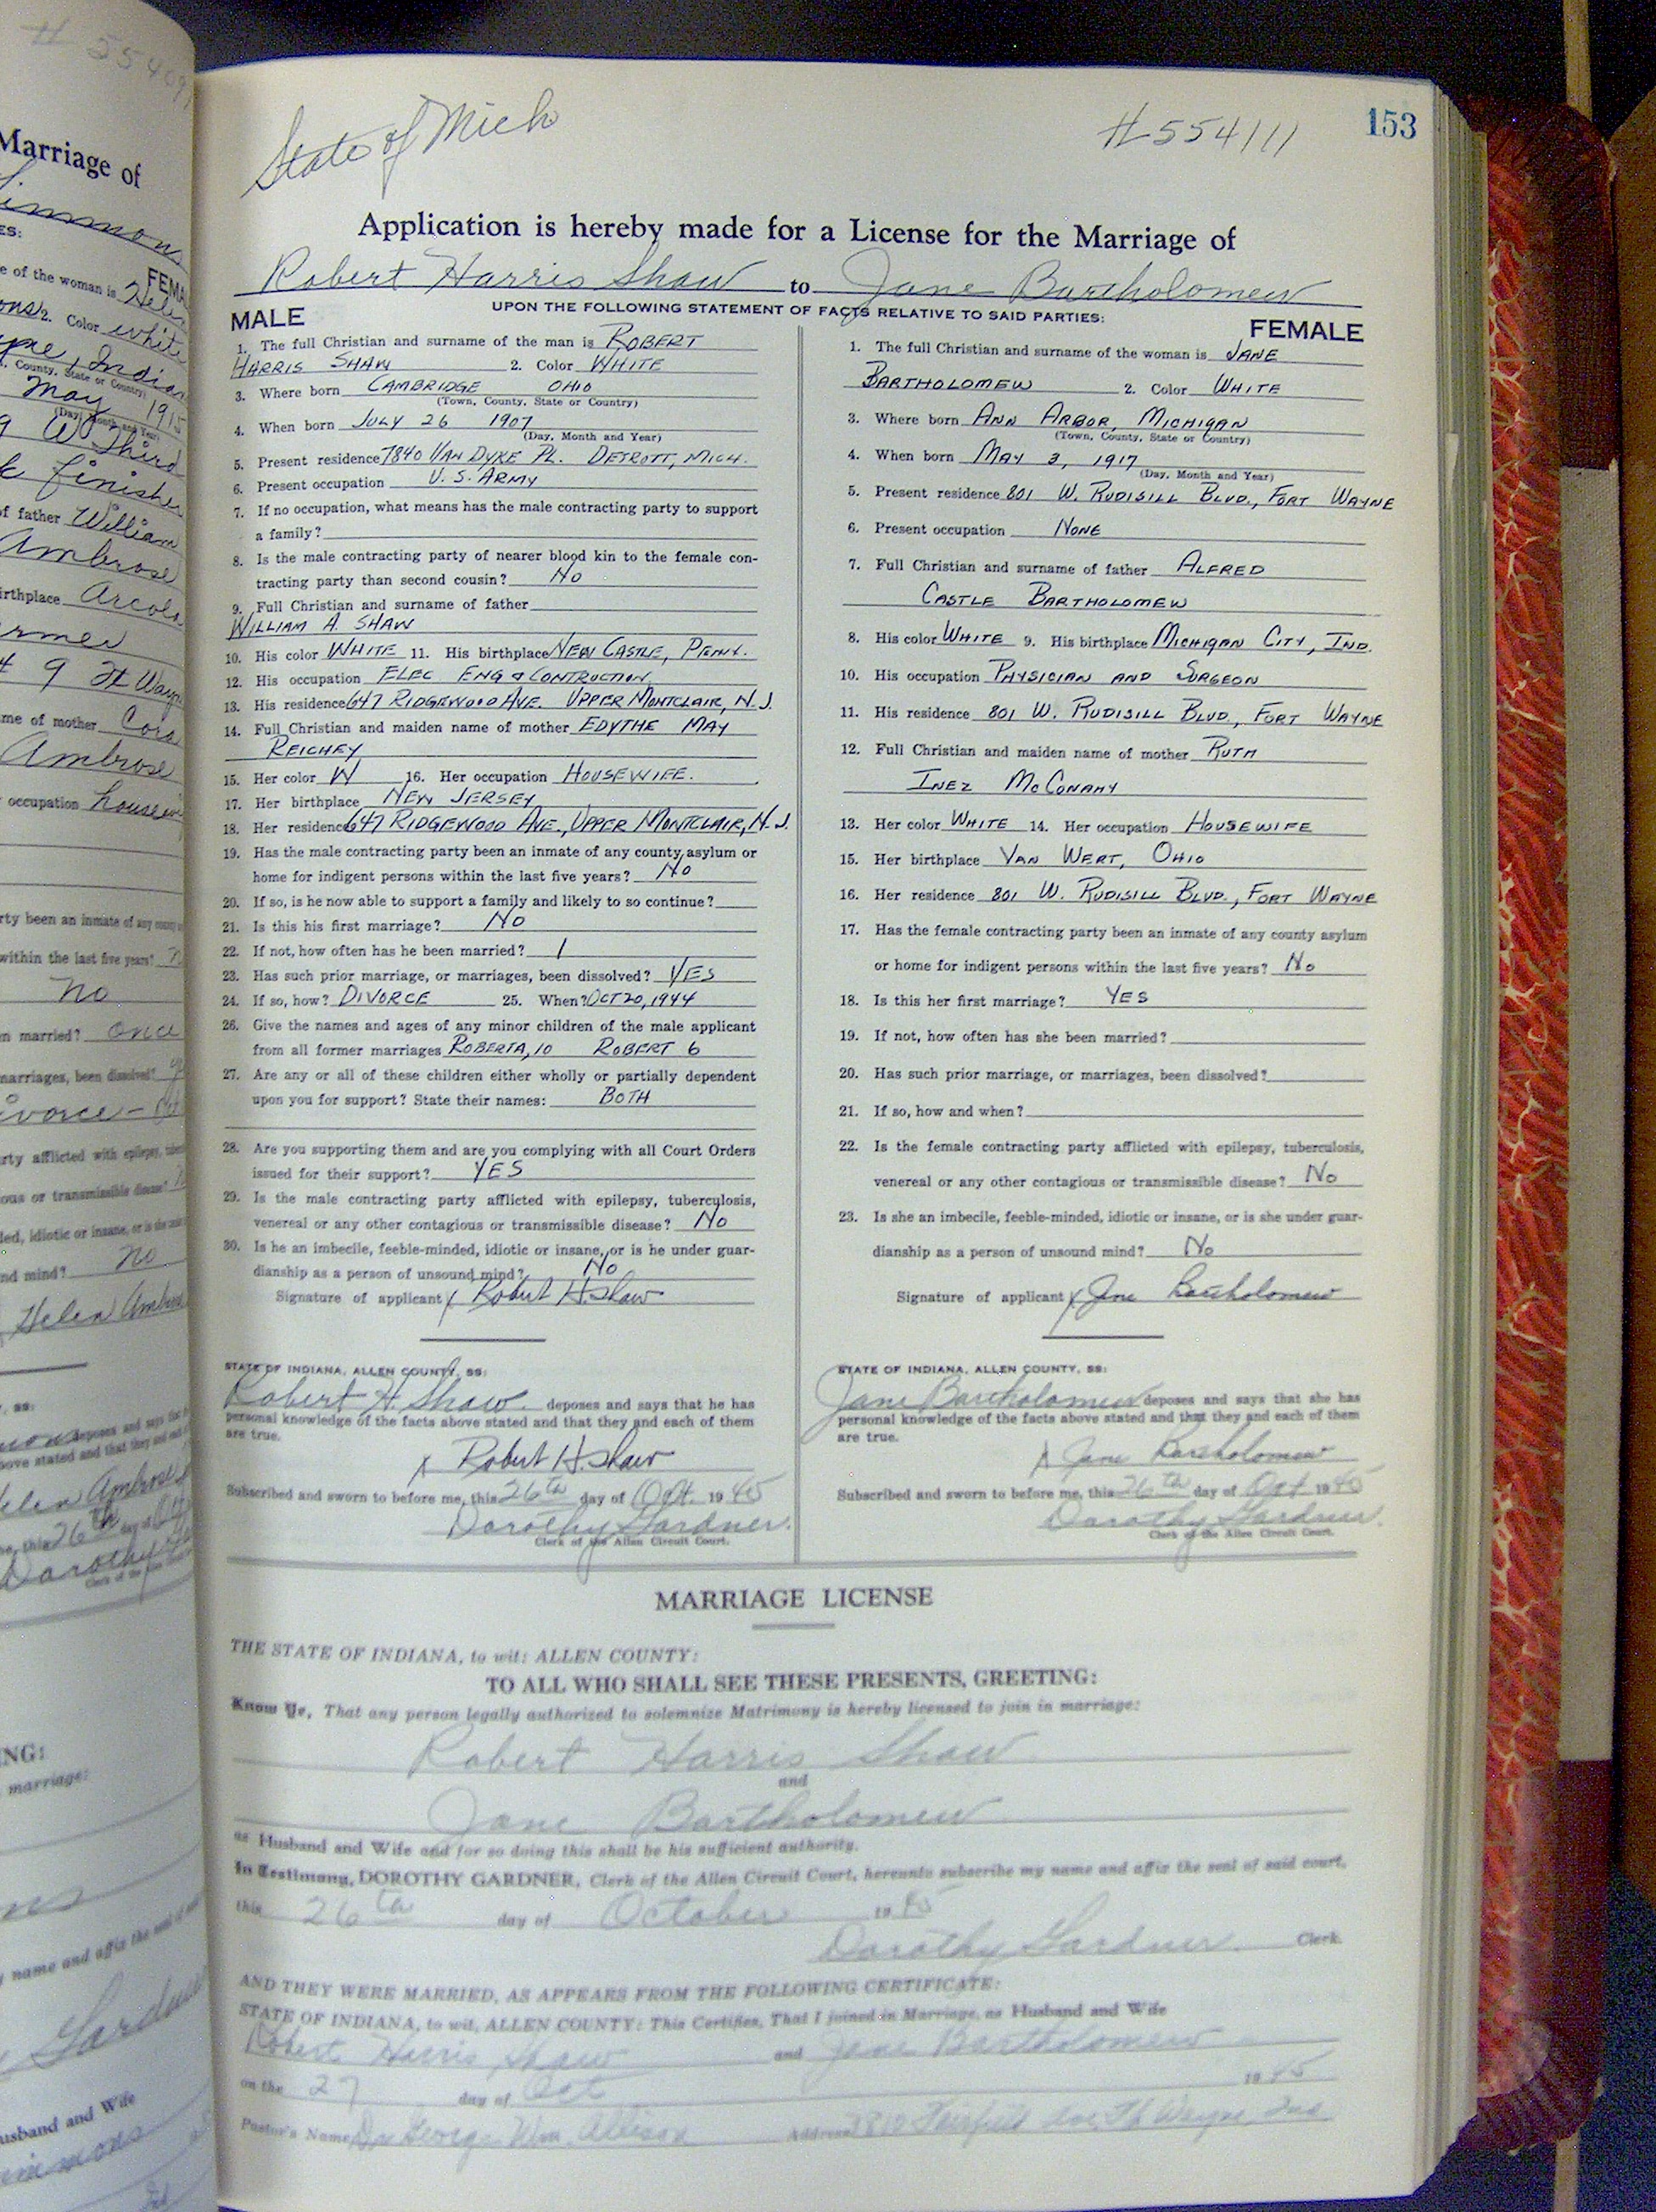 # 55409
Marriage of
State of Mich
#554111
153
Application is hereby made for a License for the Marriage of
Robert Harris Shaw to Jane Bartholomew
UPON THE FOLLOWING STATEMENT OF FACTS RELATIVE TO SAID PARTIES:
MALE
1. The full Christian and surname of the man is ROBERT
HARRIS SHAW 2. Color WHITE
3. Where born CAMBRIDGE OHIO
(Town, County, State or Country)
4. When born JULY 26 1907
(Day, Month and Year)
5. Present residence 7840 VAN DYKE PL. DETROIT, MICH.
6. Present occupation U.S. ARMY
7. If no occupation, what means has the male contracting party to support
a family?
8. Is the male contracting party of nearer blood kin to the female con-
tracting party than second cousin? No
9. Full Christian and surname of father
WILLIAM A. SHAW
10. His color WHITE 11. His birthplace NEW CASTLE, PENN.
12. His occupation ELEC ENG & CONTRUCTION
13. His residence 647 RIDGEWOOD AVE. UPPER MONTCLAIR, N.J.
14. Full Christian and maiden name of mother EDYTHE MAY
REICHEY
15. Her color W 16. Her occupation HOUSEWIFE.
17. Her birthplace NEW JERSEY
18. Her residence 647 RIDGEWOOD AVE., UPPER MONTCLAIR, N.J.
19. Has the male contracting party been an inmate of any county asylum or
home for indigent persons within the last five years? No
20. If so, is he now able to support a family and likely to so continue?
21. Is this his first marriage? No
22. If not, how often has he been married? 1
23. Has such prior marriage, or marriages, been dissolved? YES
24. If so, how? DIVORCE 25. When? OCT 20, 1944
26. Give the names and ages of any minor children of the male applicant
from all former marriages ROBERTA, 10 ROBERT 6
27. Are any or all of these children either wholly or partially dependent
upon you for support? State their names: BOTH
28. Are you supporting them and are you complying with all Court Orders
issued for their support? YES
29. Is the male contracting party afflicted with epilepsy, tuberculosis,
venereal or any other contagious or transmissible disease? No
30. Is he an imbecile, feeble-minded, idiotic or insane, or is he under guar-
dianship as a person of unsound mind? No
Signature of applicant x Robert H. Shaw
STATE OF INDIANA, ALLEN COUNTY, SS:
Robert H. Shaw deposes and says that he has
personal knowledge of the facts above stated and that they and each of them
are true.
x Robert H. Shaw
Subscribed and sworn to before me, this 26th day of Oct. 1945
Dorothy Gardner.
Clerk of the Allen Circuit Court.
FEMALE
1. The full Christian and surname of the woman is JANE
BARTHOLOMEW 2. Color WHITE
3. Where born ANN ARBOR, MICHIGAN
(Town, County, State or Country)
4. When born MAY 3, 1917
(Day, Month and Year)
5. Present residence 801 W. RUDISILL BLVD., FORT WAYNE
6. Present occupation NONE
7. Full Christian and surname of father ALFRED
CASTLE BARTHOLOMEW
8. His color WHITE 9. His birthplace MICHIGAN CITY, IND.
10. His occupation PHYSICIAN AND SURGEON
11. His residence 801 W. RUDISILL BLVD., FORT WAYNE
12. Full Christian and maiden name of mother RUTH
INEZ MCCONAHY
13. Her color WHITE 14. Her occupation HOUSEWIFE
15. Her birthplace VAN WERT, OHIO
16. Her residence 801 W. RUDISILL BLVD., FORT WAYNE
17. Has the female contracting party been an inmate of any county asylum
or home for indigent persons within the last five years? No
18. Is this her first marriage? YES
19. If not, how often has she been married?
20. Has such prior marriage, or marriages, been dissolved?
21. If so, how and when?
22. Is the female contracting party afflicted with epilepsy, tuberculosis,
venereal or any other contagious or transmissible disease? No
23. Is she an imbecile, feeble-minded, idiotic or insane, or is she under guar-
dianship as a person of unsound mind? No
Signature of applicant x Jane Bartholomew
STATE OF INDIANA, ALLEN COUNTY, SS:
Jane Bartholomew deposes and says that she has
personal knowledge of the facts above stated and that they and each of them
are true.
x Jane Bartholomew
Subscribed and sworn to before me, this 26th day of Oct 1945
Dorothy Gardner.
Clerk of the Allen Circuit Court.
MARRIAGE LICENSE
THE STATE OF INDIANA, to wit: ALLEN COUNTY:
TO ALL WHO SHALL SEE THESE PRESENTS, GREETING:
Know Ye, That any person legally authorized to solemnize Matrimony is hereby licensed to join in marriage:
Robert Harris Shaw
and
Jane Bartholomew
as Husband and Wife and for so doing this shall be his sufficient authority.
In Testimony, DOROTHY GARDNER, Clerk of the Allen Circuit Court, hereunto subscribe my name and affix the seal of said court,
this 26th day of October 1945
Dorothy Gardner. Clerk.
AND THEY WERE MARRIED, AS APPEARS FROM THE FOLLOWING CERTIFICATE:
STATE OF INDIANA, to wit, ALLEN COUNTY: This Certifies, That I joined in Marriage, as Husband and Wife
Robert Harris Shaw and Jane Bartholomew
on the 27 day of Oct 1945
Pastor's Name Dr George Wm. Allison Address Fairfield Ave. Ft Wayne Ind